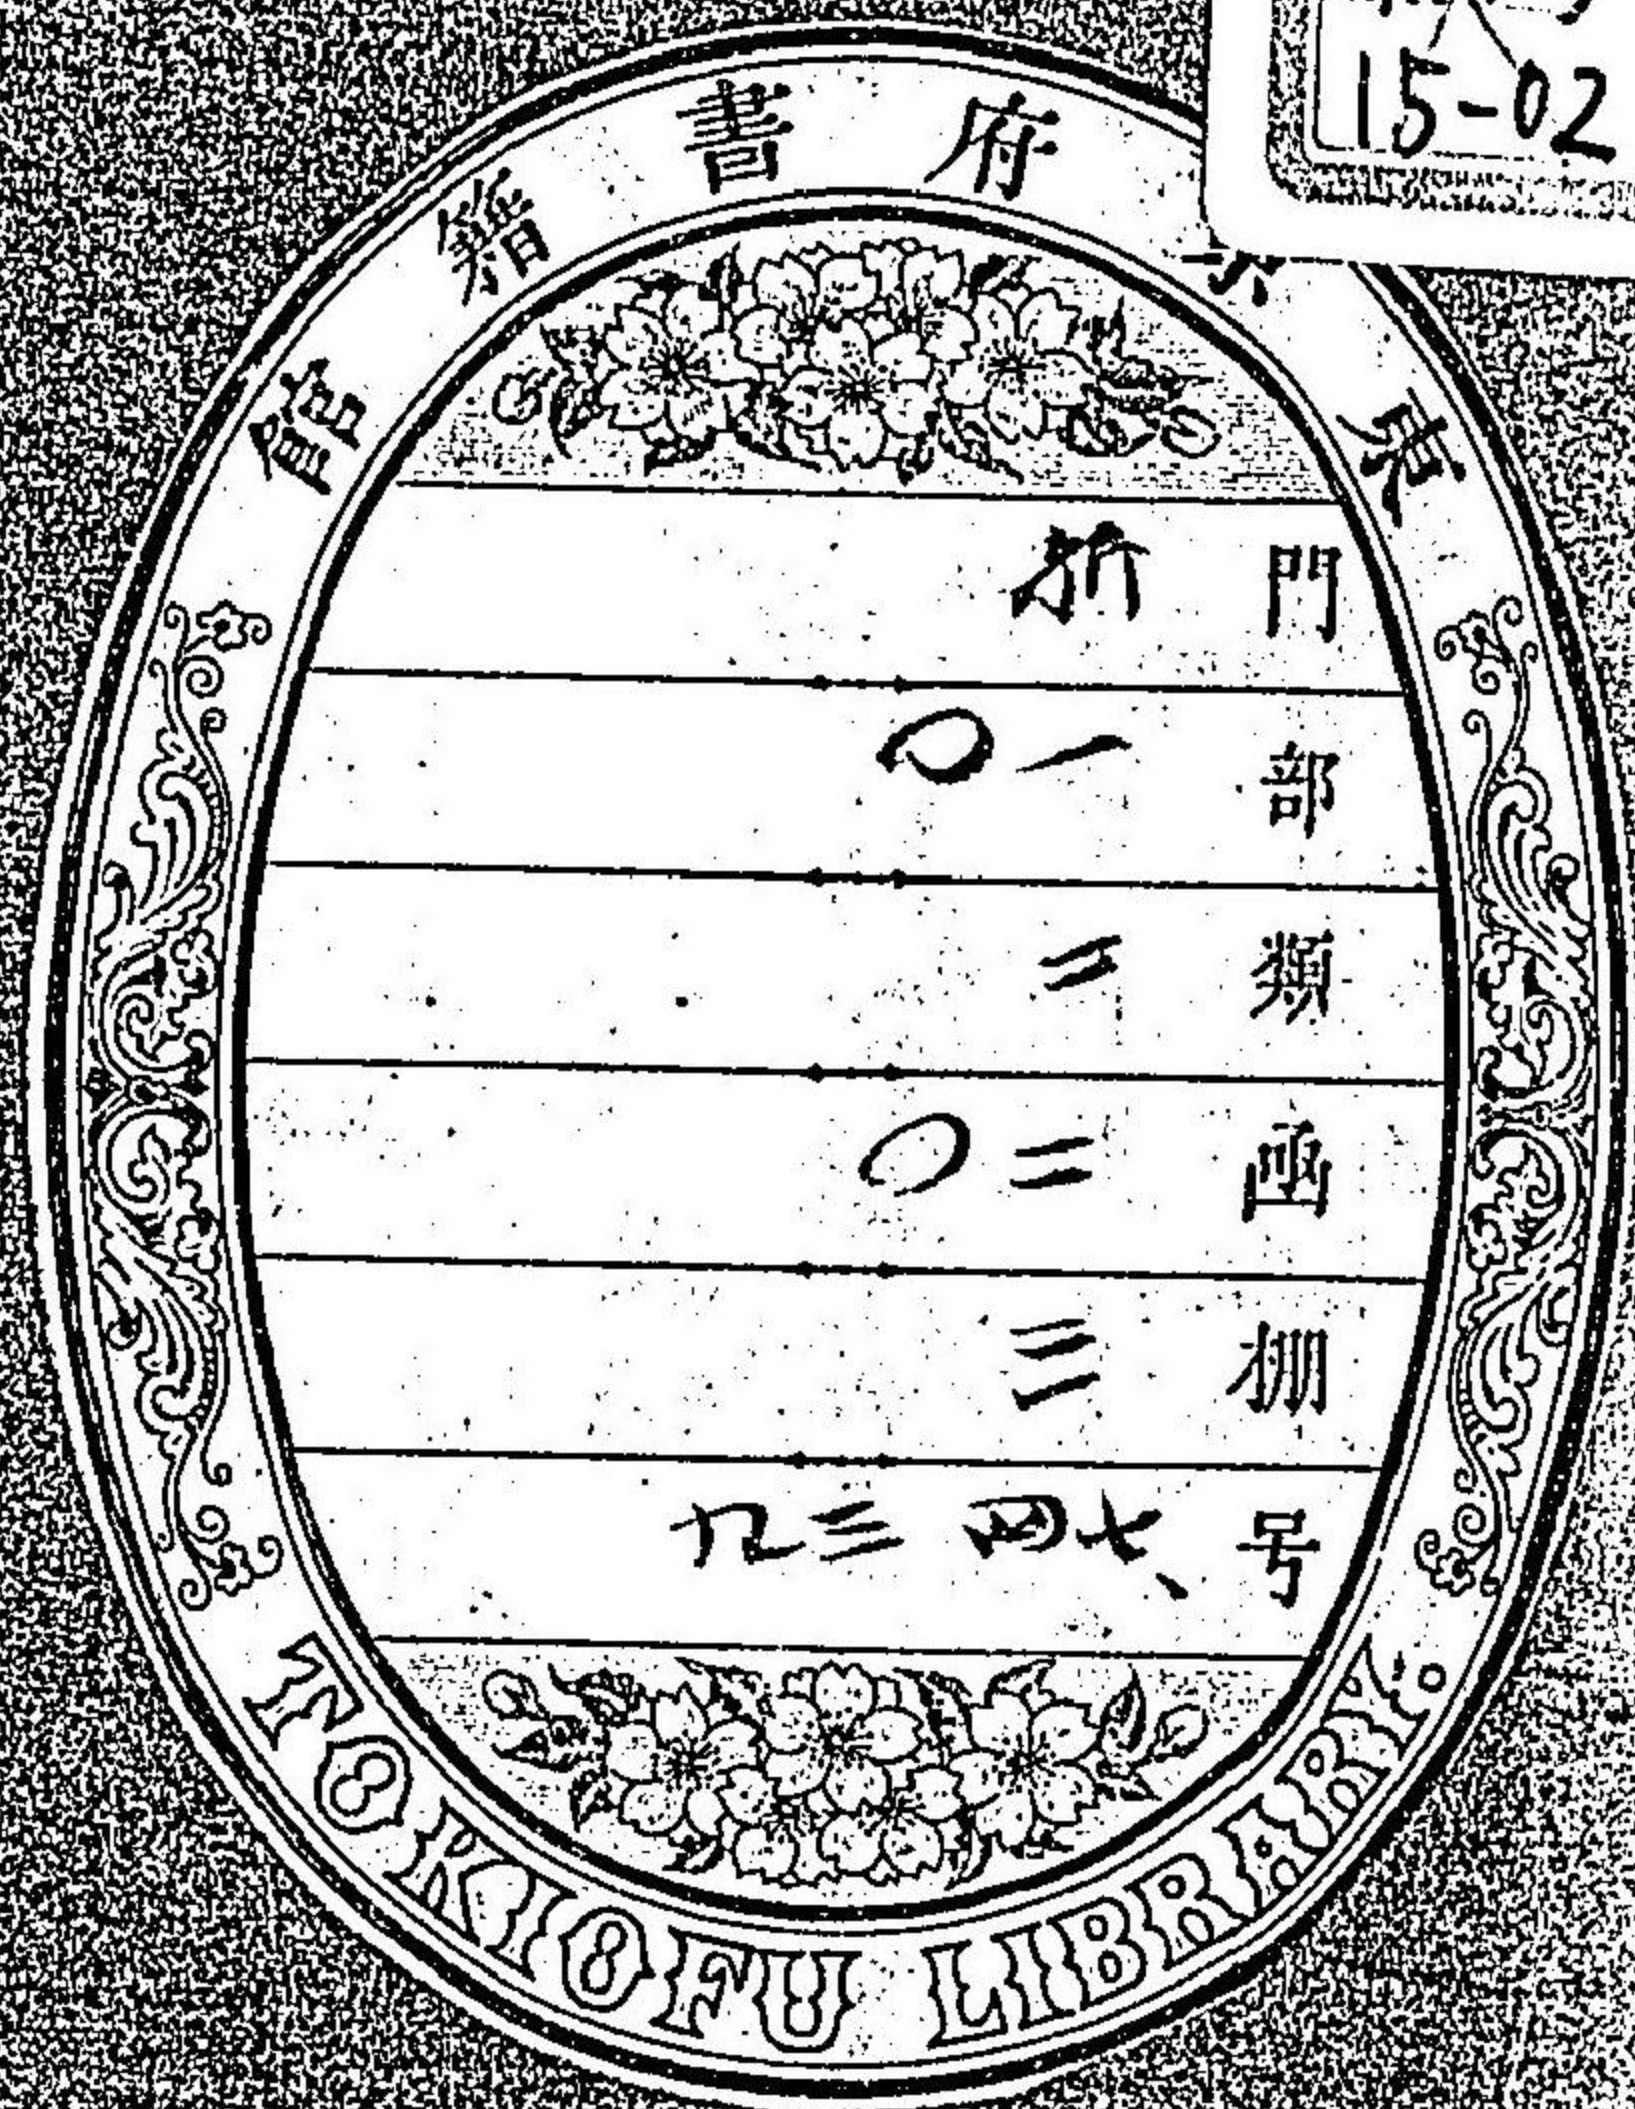 15-02
東京府書籍館
門 新
部 一〇
類 二
函 二〇
棚 三
号 七四三九
TOKIOFU LIBRARY.